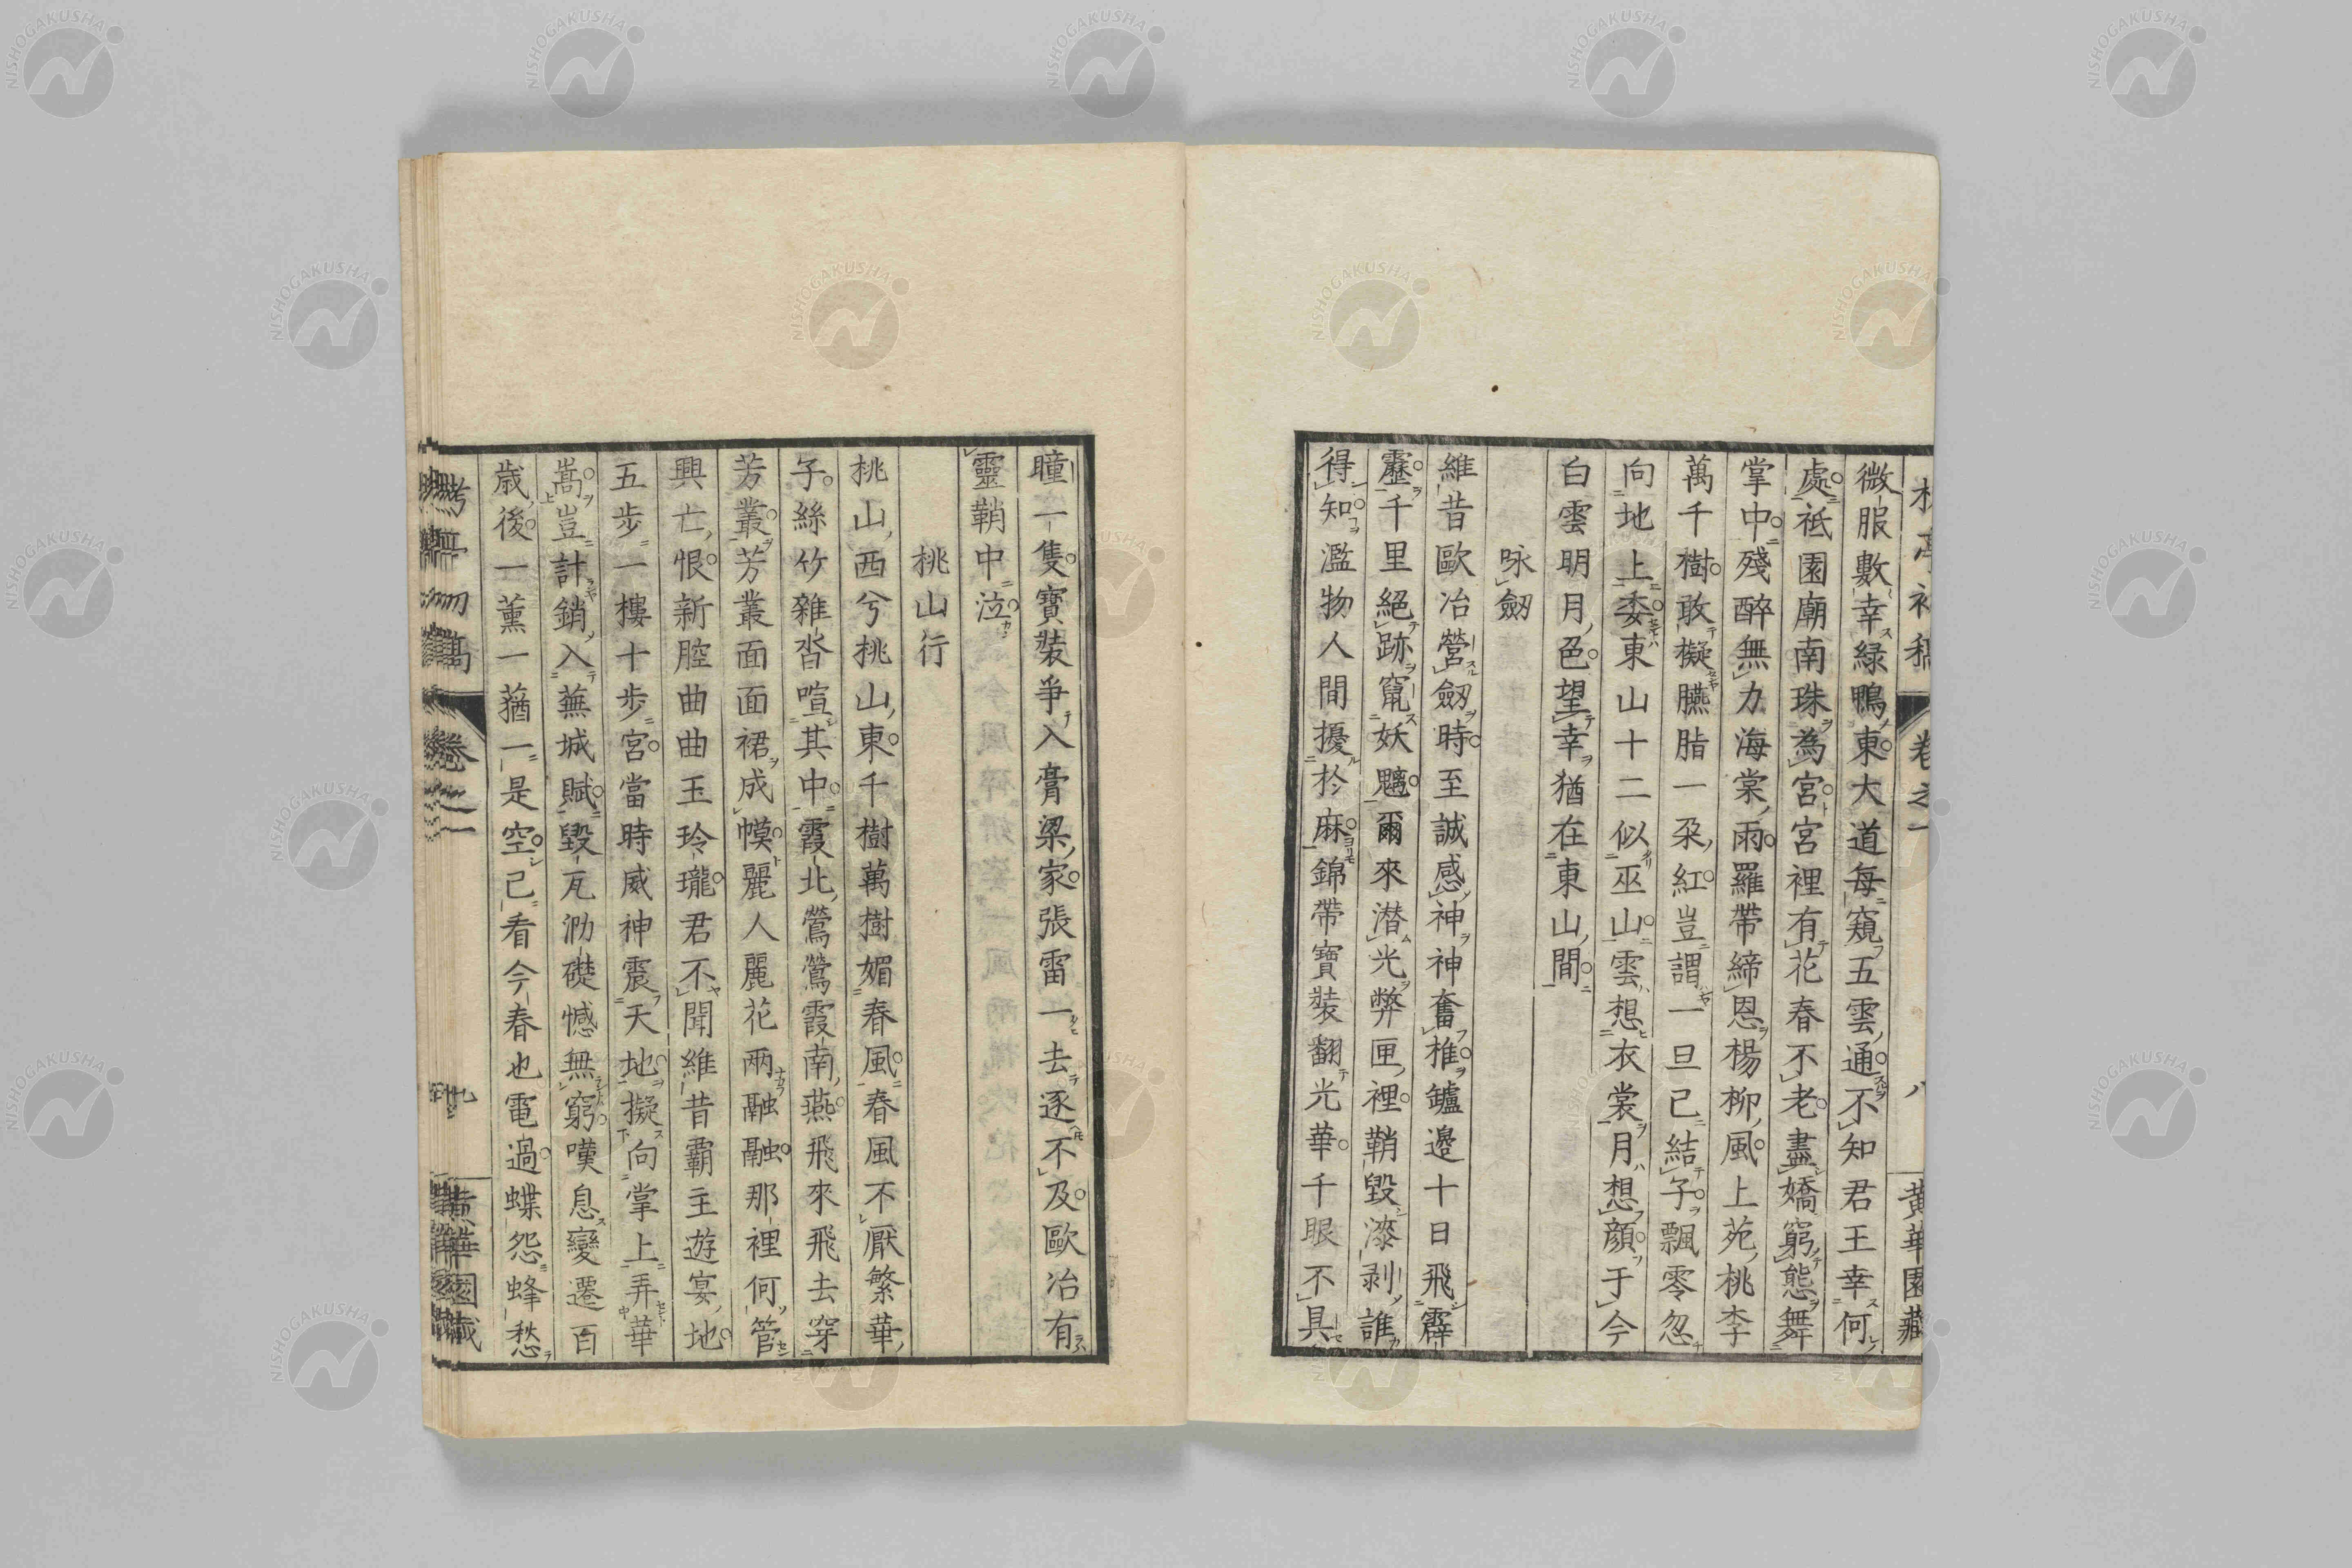 微服數幸緑鴨東大道每窺五雲通不知君王幸何
處祇園廟南珠為宮宮裡有花春不老盡嬌窮態舞
掌中殘醉無力海棠雨羅帶締恩楊柳風上苑桃李
萬千樹敢擬臙脂一朶紅豈謂一旦已結子飄零忽
向地上委東山十二似巫山雲想衣裳月想顔于今
白雲明月色望幸猶在東山間
咏劔
維昔歐冶營劔時至誠感神神奮椎鑪邊十日飛霹
靂千里絕跡竄妖魑爾來潜光弊匣裡鞘毀漆剥誰
得知濫物人間擾於麻錦帶寶裝翻光華千眼不具
瞳一隻寶裝爭入膏粱家張雷一去逐不及歐冶有
靈鞘中泣
桃山行
桃山西兮桃山東千樹萬樹媚春風春風不厭繁華
子絲竹雜沓喧其中霞北鶯鶯霞南燕飛來飛去穿
芳叢芳叢面面裙成幙麗人麗花兩融融那裡何管
興亡恨新腔曲曲玉玲瓏君不聞維昔霸主遊宴地
五步一樓十步宮當時威神震天地擬向掌上弄華
嵩豈計銷入蕪城賦毀瓦泐礎憾無窮嘆息變遷百
歲後一薫一蕕一是空已看今春也電過蝶怨蜂愁
卷之一
八
黄華園藏